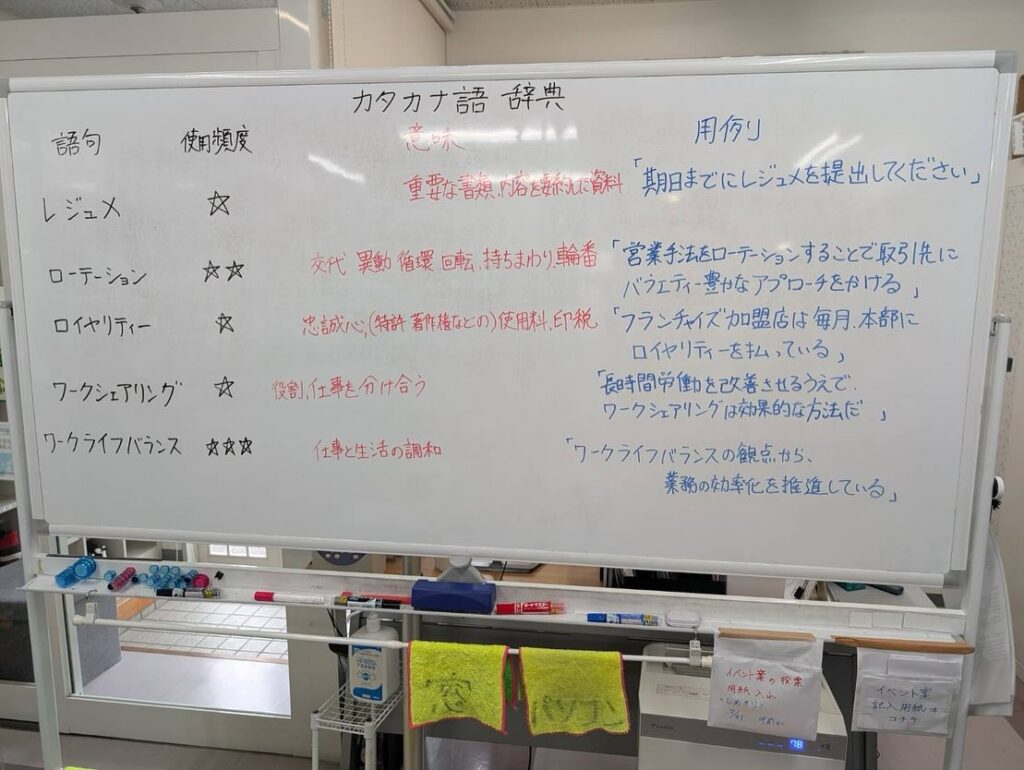 カタカナ語 辞典
語句 使用頻度 意味 用例
レジュメ ☆ 重要な書類、内容を要約した資料 「期日までにレジュメを提出してください」
ローテーション ☆☆ 交代 異動 循環 回転、持ちまわり、輪番 「営業手法をローテーションすることで取引先に
バラエティー豊かなアプローチをかける」
ロイヤリティー ☆ 忠誠心、(特許 著作権などの)使用料、印税 「フランチャイズ加盟店は毎月、本部に
ロイヤリティーを払っている」
ワークシェアリング ☆ 役割、仕事を分け合う 「長時間労働を改善させるうえで、
ワークシェアリングは効果的な方法だ」
ワークライフバランス ☆☆☆ 仕事と生活の調和 「ワークライフバランスの観点から、
業務の効率化を推進している」
ボードマスター
窓
イベント案の投票
用紙入れ
イベント案
記入用紙は
コチラ
78